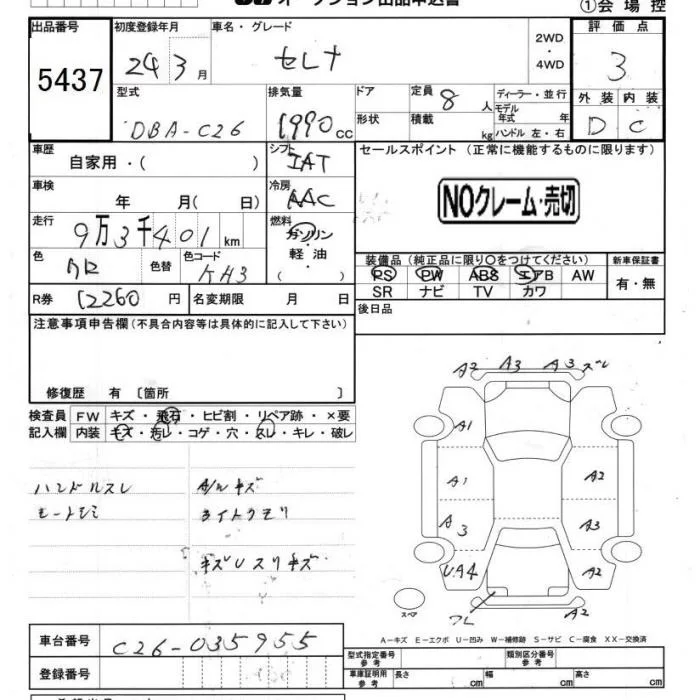 オークション出品申込書
①会場控
出品番号 初度登録年月 車名・グレード 評価点
5437 24 3月 セレナ 2WD ・ 4WD 3
型式 排気量 ドア 定員 8人 ディーラー・並行 外装 内装
DBA-C26 1990cc 形状 積載 kg モデル年式 年 ハンドル 左・右 D C
車歴 自家用・( ) シフト IAT セールスポイント (正常に機能するものに限ります)
車検 年 月( 日) 冷房 AAC NOクレーム・売切
走行 9万3千401km 燃料 ガソリン・軽油・( )
色 色替 色コード KH3 装備品(純正品に限り○をつけてください) 新車保証書
PS PW ABS エアB AW 有・無
SR ナビ TV カワ
R券 12260円 名変期限 月 日 後日品
注意事項申告欄(不具合内容等は具体的に記入して下さい)
修復歴 有 〔箇所 〕
検査員 FW キズ・飛石・ヒビ割・リペア跡・×要
記入欄 内装 キズ・汚レ・コゲ・穴・スレ・キレ・破レ
ハンドルスレ A/Wキズ
ライトクモリ
A2 A3 A3 ズレ
A1
A1 A2
A3 A3
U.A4 A2
スペア
A-キズ E-エクボ U-凹み W-補修跡 S-サビ C-腐食 XX-交換済
車台番号 C26-035955
型式指定番号 参考 類別区分番号 参考
登録番号 車庫証明用 参考 長さ cm 幅 cm 高さ cm